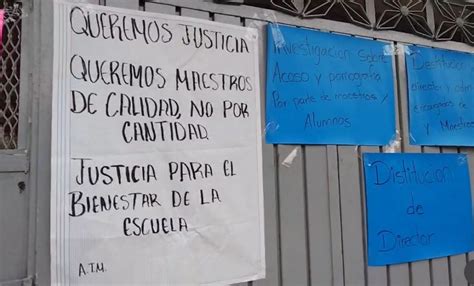 QUEREMOS JUSTICIA
QUEREMOS MAESTROS
DE CALIDAD, NO POR
CANTIDAD.
JUSTICIA PARA EL
BIENESTAR DE LA
ESCUELA
A.T.M.
Investigacion Sobre
Acoso y pornografia
Por parte de maestros y
Alumnos
director y
y Maestros
Distitucion
de
Director